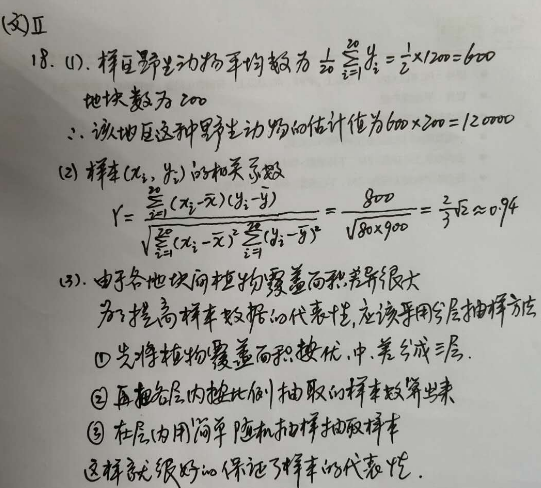 (文)Ⅱ
18. (1). 样区野生动物平均数为 1/20 ∑_{i=1}^{20} y_i = 1/2 ×1200=600
地块数为 200
∴ 该地区这种野生动物的估计值为600×200=120000
(2) 样本(x_i, y_i)的相关系数
r = ∑_{i=1}^{20}(x_i-x̄)(y_i-ȳ) / √(∑_{i=1}^{20}(x_i-x̄)² ∑_{i=1}^{20}(y_i-ȳ)²) = 800/√(80×900) = 2/3 √2 ≈0.94
(3). 由于各地块间植物覆盖面积差异很大
为了提高样本数据的代表性,应该采用分层抽样方法
① 先将植物覆盖面积按优、中、差分成三层.
② 再把各层内按比例抽取的样本数算出来
③ 在层内用简单随机抽样抽取样本
这样就很好的保证了样本的代表性.